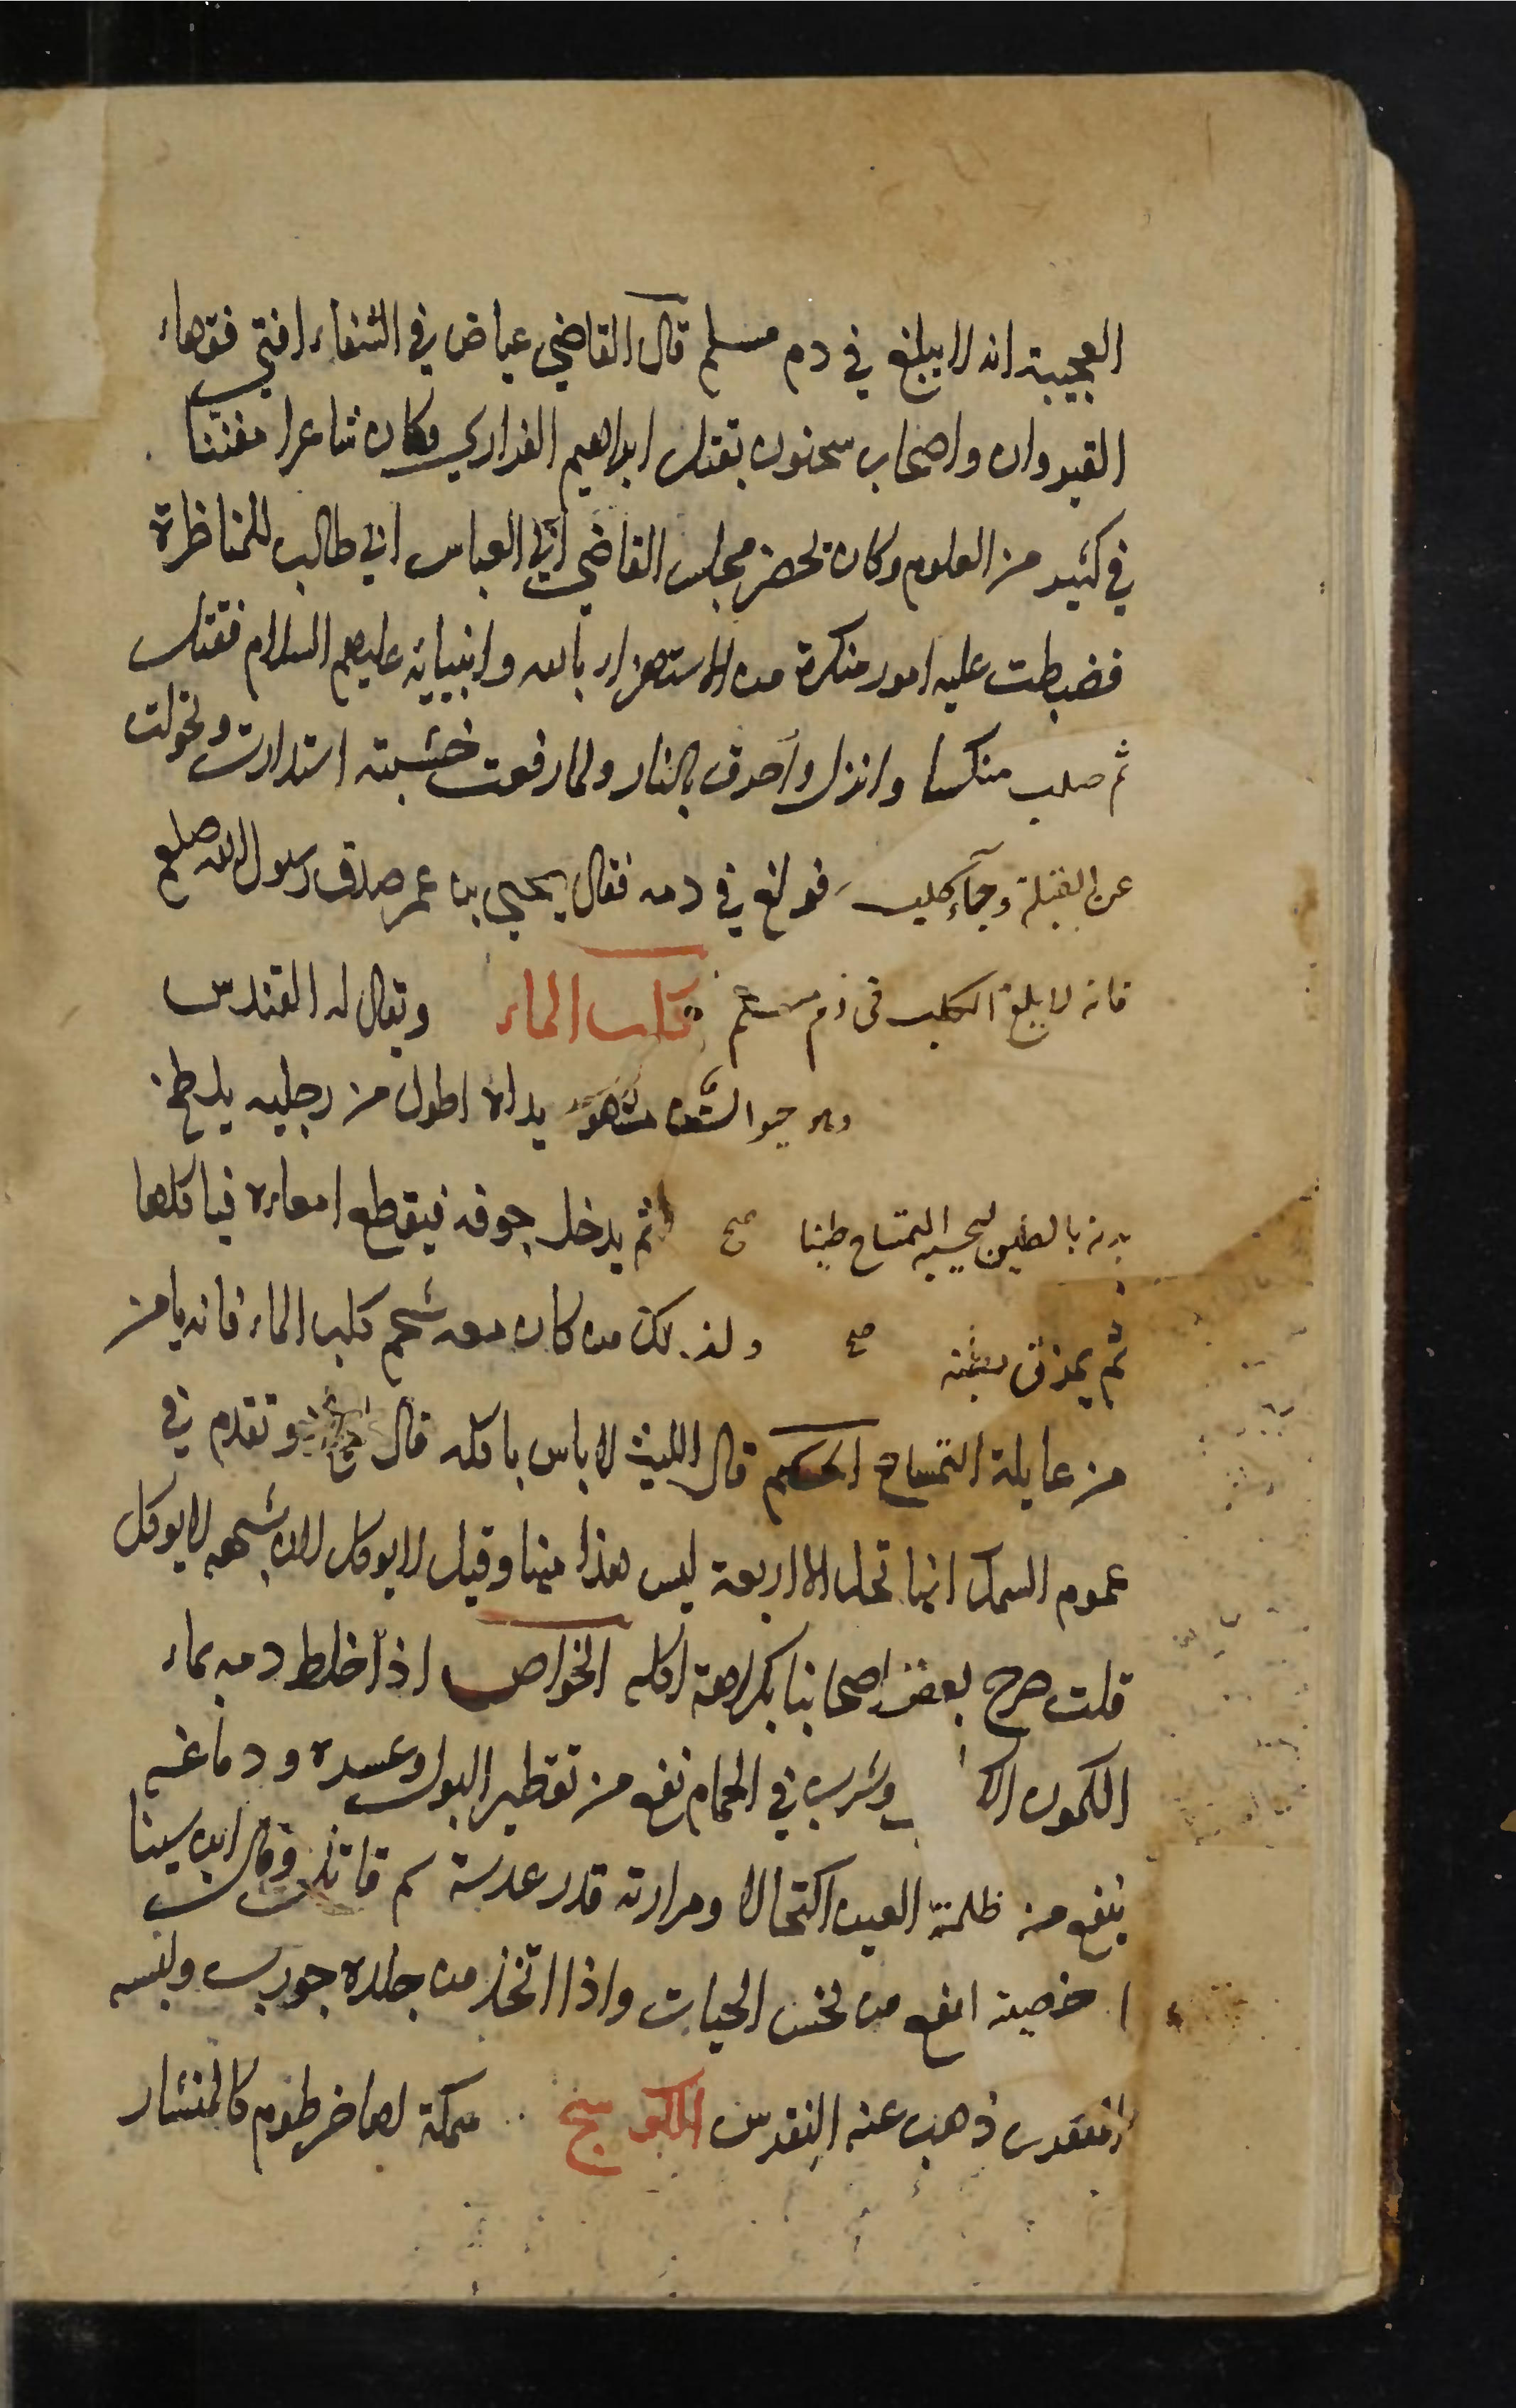 العجيبة انه لا يبلغ في دم مسلم قال القاضي عياض في الشفاء افتى فقهاء
القيروان واصحاب سحنون بقتل ابراهيم الفزاري وكان شاعرا مفننا
في كثير من العلوم وكان يحضر مجلس القاضي ابي العباس ابي طالب للمناظرة
فضبطت عليه امور منكرة من الاستهزاء بالله وانبيايه عليهم السلام فقتل
ثم صلب منكسا وانزل واحرق بالنار ولما رفعت خشبته استدارت وتحولت
عن القبلة وجاء كلب فولغ في دمه فقال يحيى بن عمر صدق رسول الله صلعم
فانه لا يلغ الكلب في دم مسلم كلب الماء ويقال له القندس
وهو حيوان يداه اطول من رجليه يلطخ
بدنه بالطين ليحسبه التمساح طينا صح ثم يدخل جوفه فيقطع امعاءه فياكلها
ثم يمزق بطنه صح ولذلك من كان معه شحم كلب الماء فانه يامن
من عايلة التمساح الحكم قال الليث لا باس باكله قال وتقدم في
عموم السمك انها تحل الا اربعة ليس هذا منها وقيل لا يوكل لان شبهه لا يوكل
قلت صرح بعض اصحابنا بكراهة اكله الخواص اذا خلط دمه بماء
الكمون وشرب في الحمام نفع من تقطير البول وعسره ودماغه
ينفع من ظلمة العين اكتحالا ومرارته قدر عدسة سم قاتل وقال ابن سينا
خصيته انفع من نخس الحيات واذا اتخذ من جلده جورب ولبسه
ذهب عنه النقرس الكوسج سمكة لها خرطوم كالمنشار